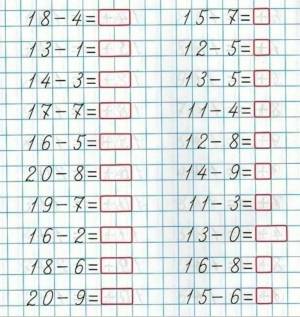 18-4=
13-1=
14-3=
17-7=
16-5=
20-8=
19-7=
16-2=
18-6=
20-9=
15-7=
12-5=
13-5=
11-4=
12-8=
14-9=
11-3=
13-0=
16-8=
15-6=